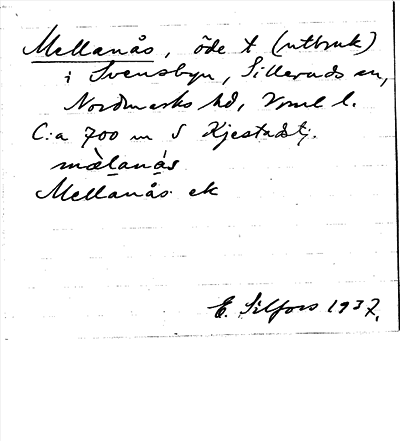 Mellanås, öde t (utbruk)
i Svensbyn, Silleruds sn,
Nordmarks hd, Vrml l.
C:a 700 m S Kjestadtj.
mæ̀lanás
Mellanås ek
E. Silfors 1937.